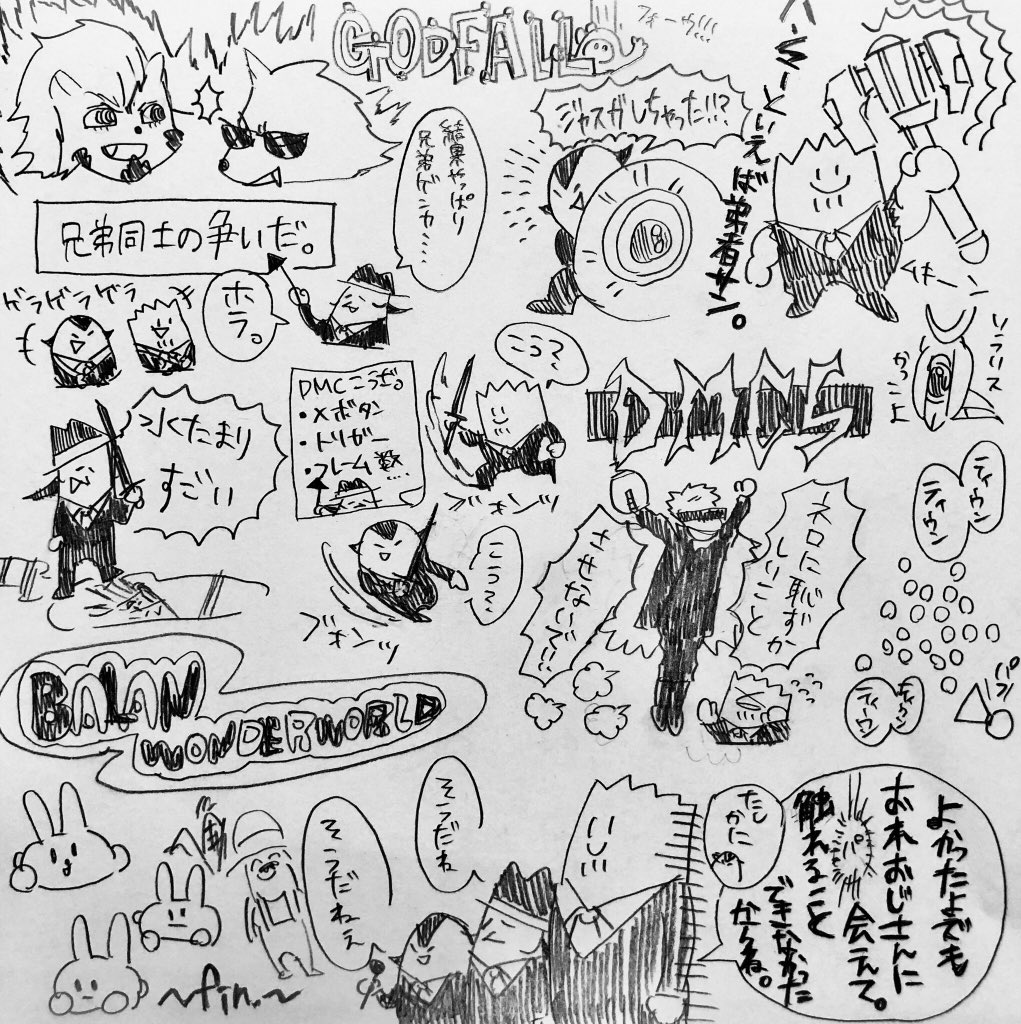 GODFALL
フォーウ!!!
ジャスガしちゃった!!?
結果やっぱり
兄弟ゲンカ…
兄弟同士の争いだ。
ホラ。
ゲラゲラゲラ
といえば弟者サン。
DMCこうざ。
・×ボタン
・トリガー
・フレーム数…
こうって、
ブォンッ
こうって、
ブォンッ
水たまり
すごい
DMC5
ネロに恥ずか
しいこと
させないで!!
ティウン
ティウン
ティウン
ティウン
BALAN
WONDERWORLD
そうだね
そうだねぇ
たし
かに
よかったよでも
おれおじさんに
会えて。
触れること
できなかった
からね。
~fin.~